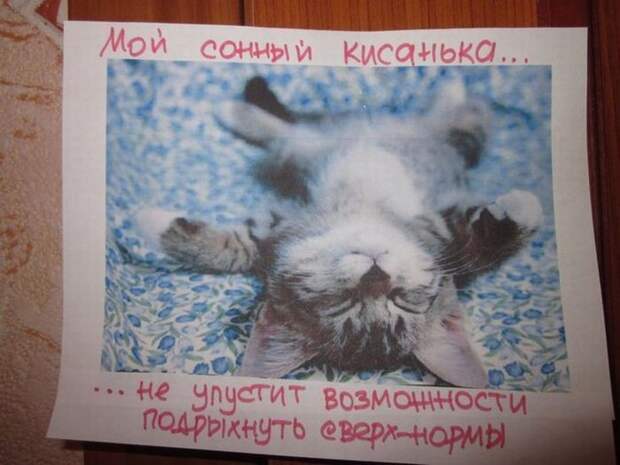 Мой сонный кисанька...
... не упустит возможности
подрыхнуть сверх-нормы